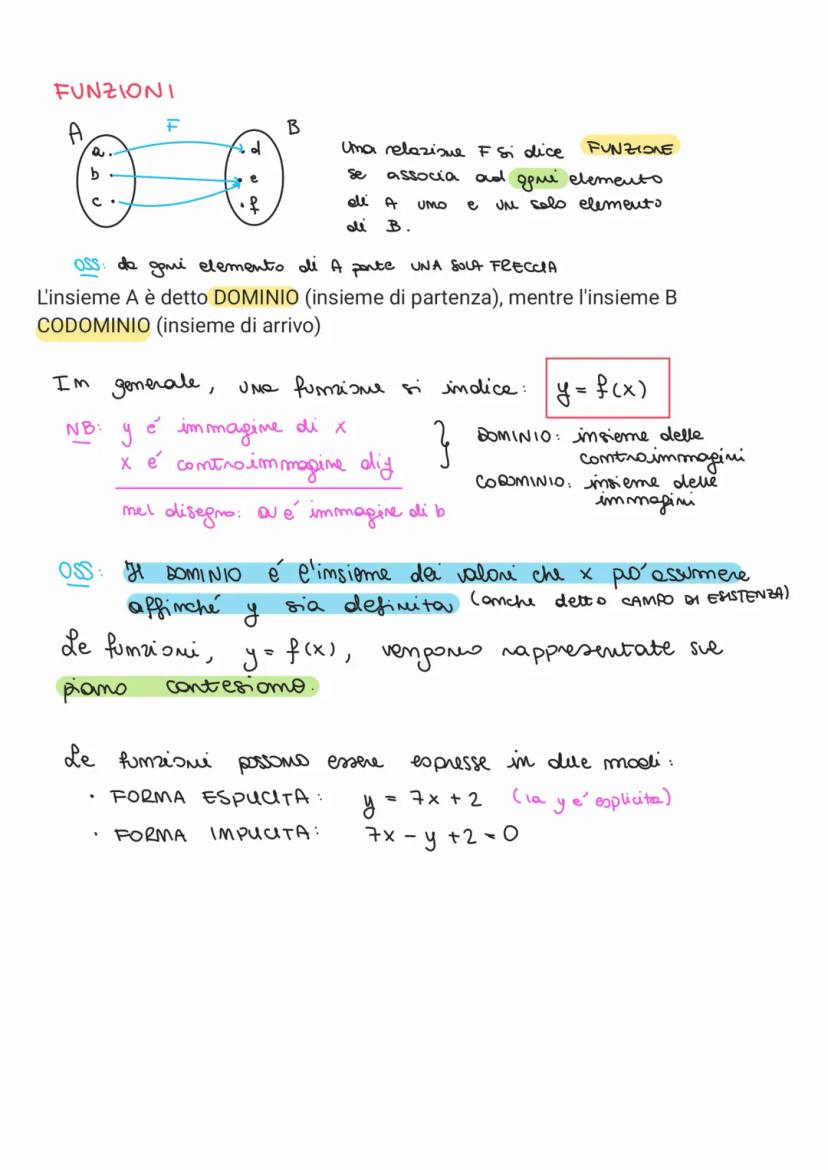 FUNZIONI
A F B
a. .d
b . . e
c . .f
Una relazione F si dice FUNZIONE
se associa ad ogni elemento
di A uno e un solo elemento
di B.
OSS: da ogni elemento di A parte UNA SOLA FRECCIA
L'insieme A è detto DOMINIO (insieme di partenza), mentre l'insieme B
CODOMINIO (insieme di arrivo)
In generale, una funzione si indica: y = f(x)
NB: y é immagine di x
x é controimmagine di y
nel disegno: a é immagine di b
} DOMINIO: insieme delle
controimmagini
CODOMINIO: insieme delle
immagini
OSS: Il DOMINIO é l'insieme dei valori che x può assumere
affinché y sia definita (anche detto CAMPO DI ESISTENZA)
Le funzioni, y = f(x), vengono rappresentate sul
piano cartesiano.
Le funzioni possono essere espresse in due modi:
· FORMA ESPLICITA: y = 7x + 2 (la y é esplicita)
· FORMA IMPLICITA: 7x - y + 2 = 0